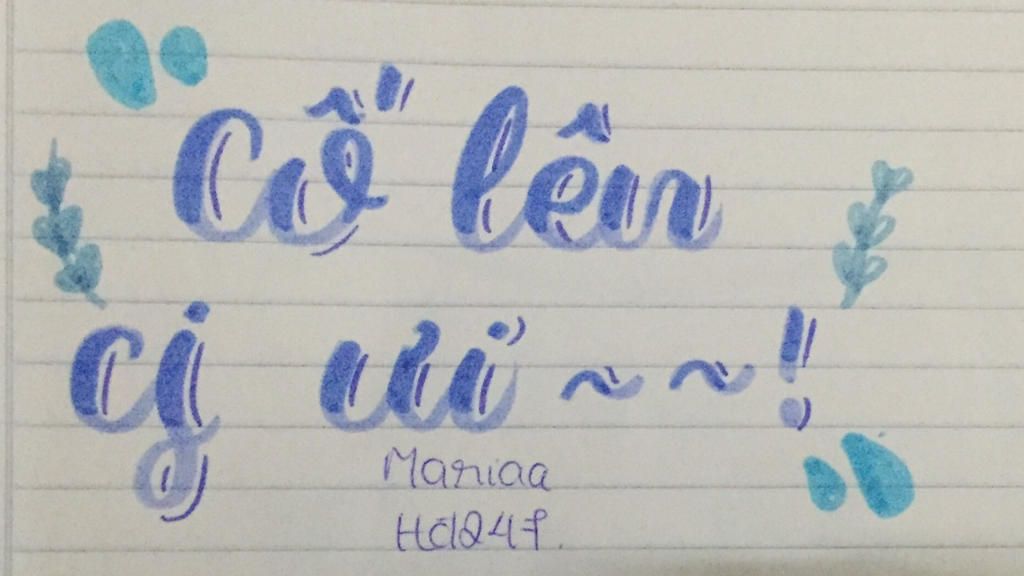 Cố lên
cj ưi ~ ~ !
Mariaa
Hd247.